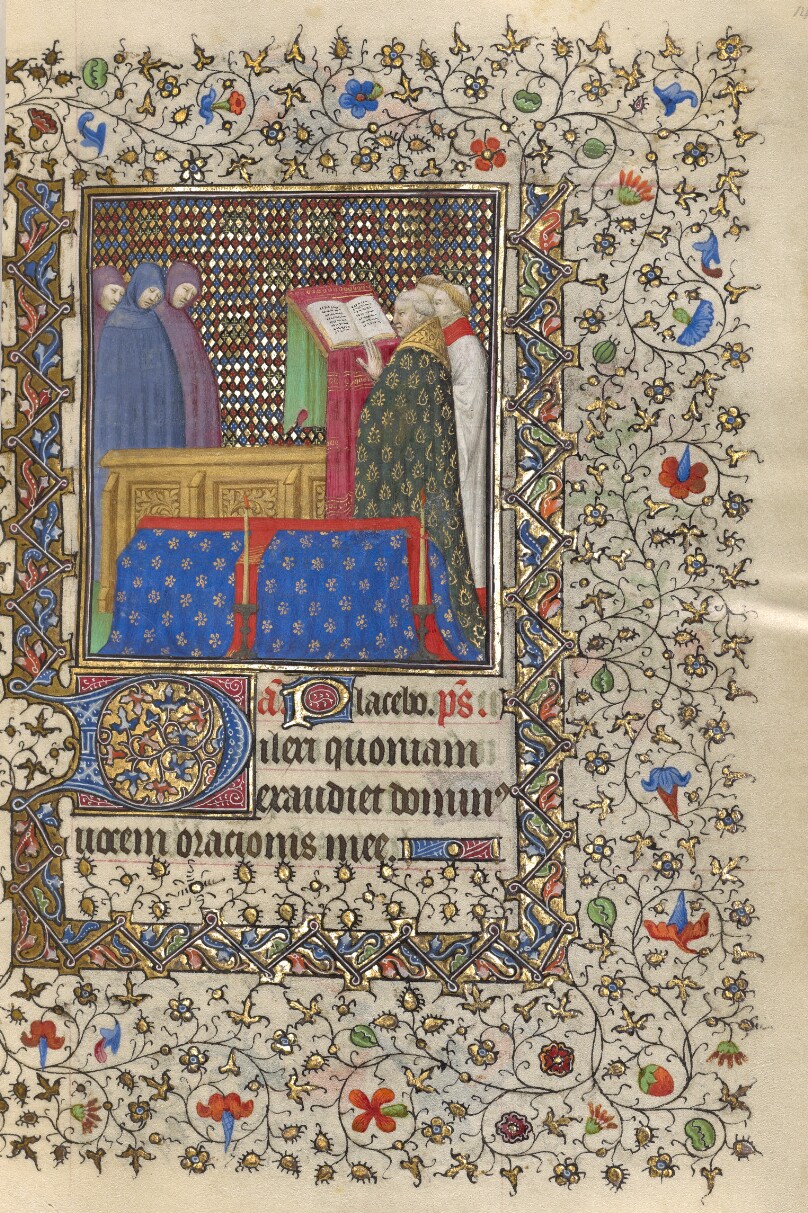 añ. Placebo. p̄s.
Dilexi quoniam
exaudiet dominꝰ
uocem oracionis mee.